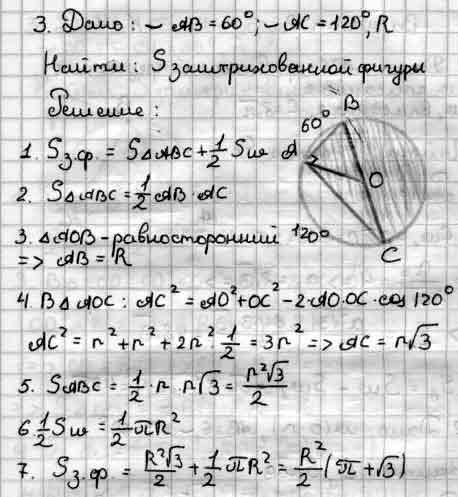 3. Дано: ◡ AB = 60°; ◡ AC = 120°, R
Найти: S заштрихованной фигуры
Решение:
B
60°
1. Sз.ф. = S△ABC + 1/2 Sш
A
O
2. S△ABC = 1/2 AB · AC
3. △AOB - равносторонний
120°
=> AB = R
C
4. В △AOC: AC² = AO² + OC² - 2·AO·OC·cos 120°
AC² = r² + r² + 2r² · 1/2 = 3r² => AC = r√3
5. SABC = 1/2 · r · r√3 = r²√3/2
6 1/2 Sш = 1/2 πR²
7. Sз.ф. = R²√3/2 + 1/2 πR² = R²/2 (π + √3)